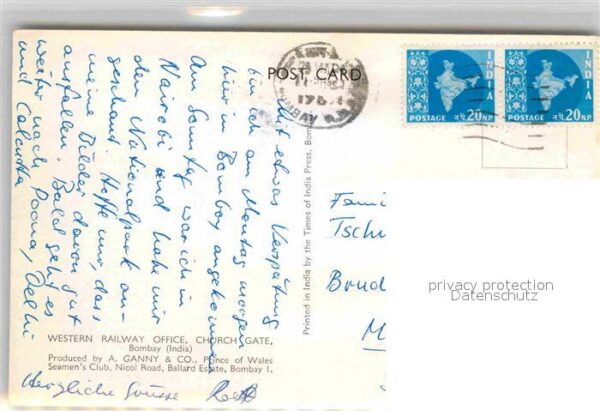 POST CARD
BOMBAY
INDIA
POSTAGE रु.P.20 NP
INDIA
POSTAGE रु.P.20 NP
Mit etwas Verspätung
bin ich am Montag morgen
hier in Bombay angekommen
Am Sonntag war ich in
Nairobi und habe mir
den Nationalpark an-
geschaut. Hoffe nur, dass
meine Bilder davon gut
ausfallen. Bald geht es
weiter nach Poona, Delhi
und Calcutta
Herzliche Grüsse
Printed in India by the Times of India Press, Bom
Fami
Tsch
Brud
M
privacy protection
Datenschutz
WESTERN RAILWAY OFFICE, CHURCH GATE,
Bombay (India)
Produced by A. GANNY & CO., Prince of Wales
Seamen's Club, Nicol Road, Ballard Estate, Bombay 1.